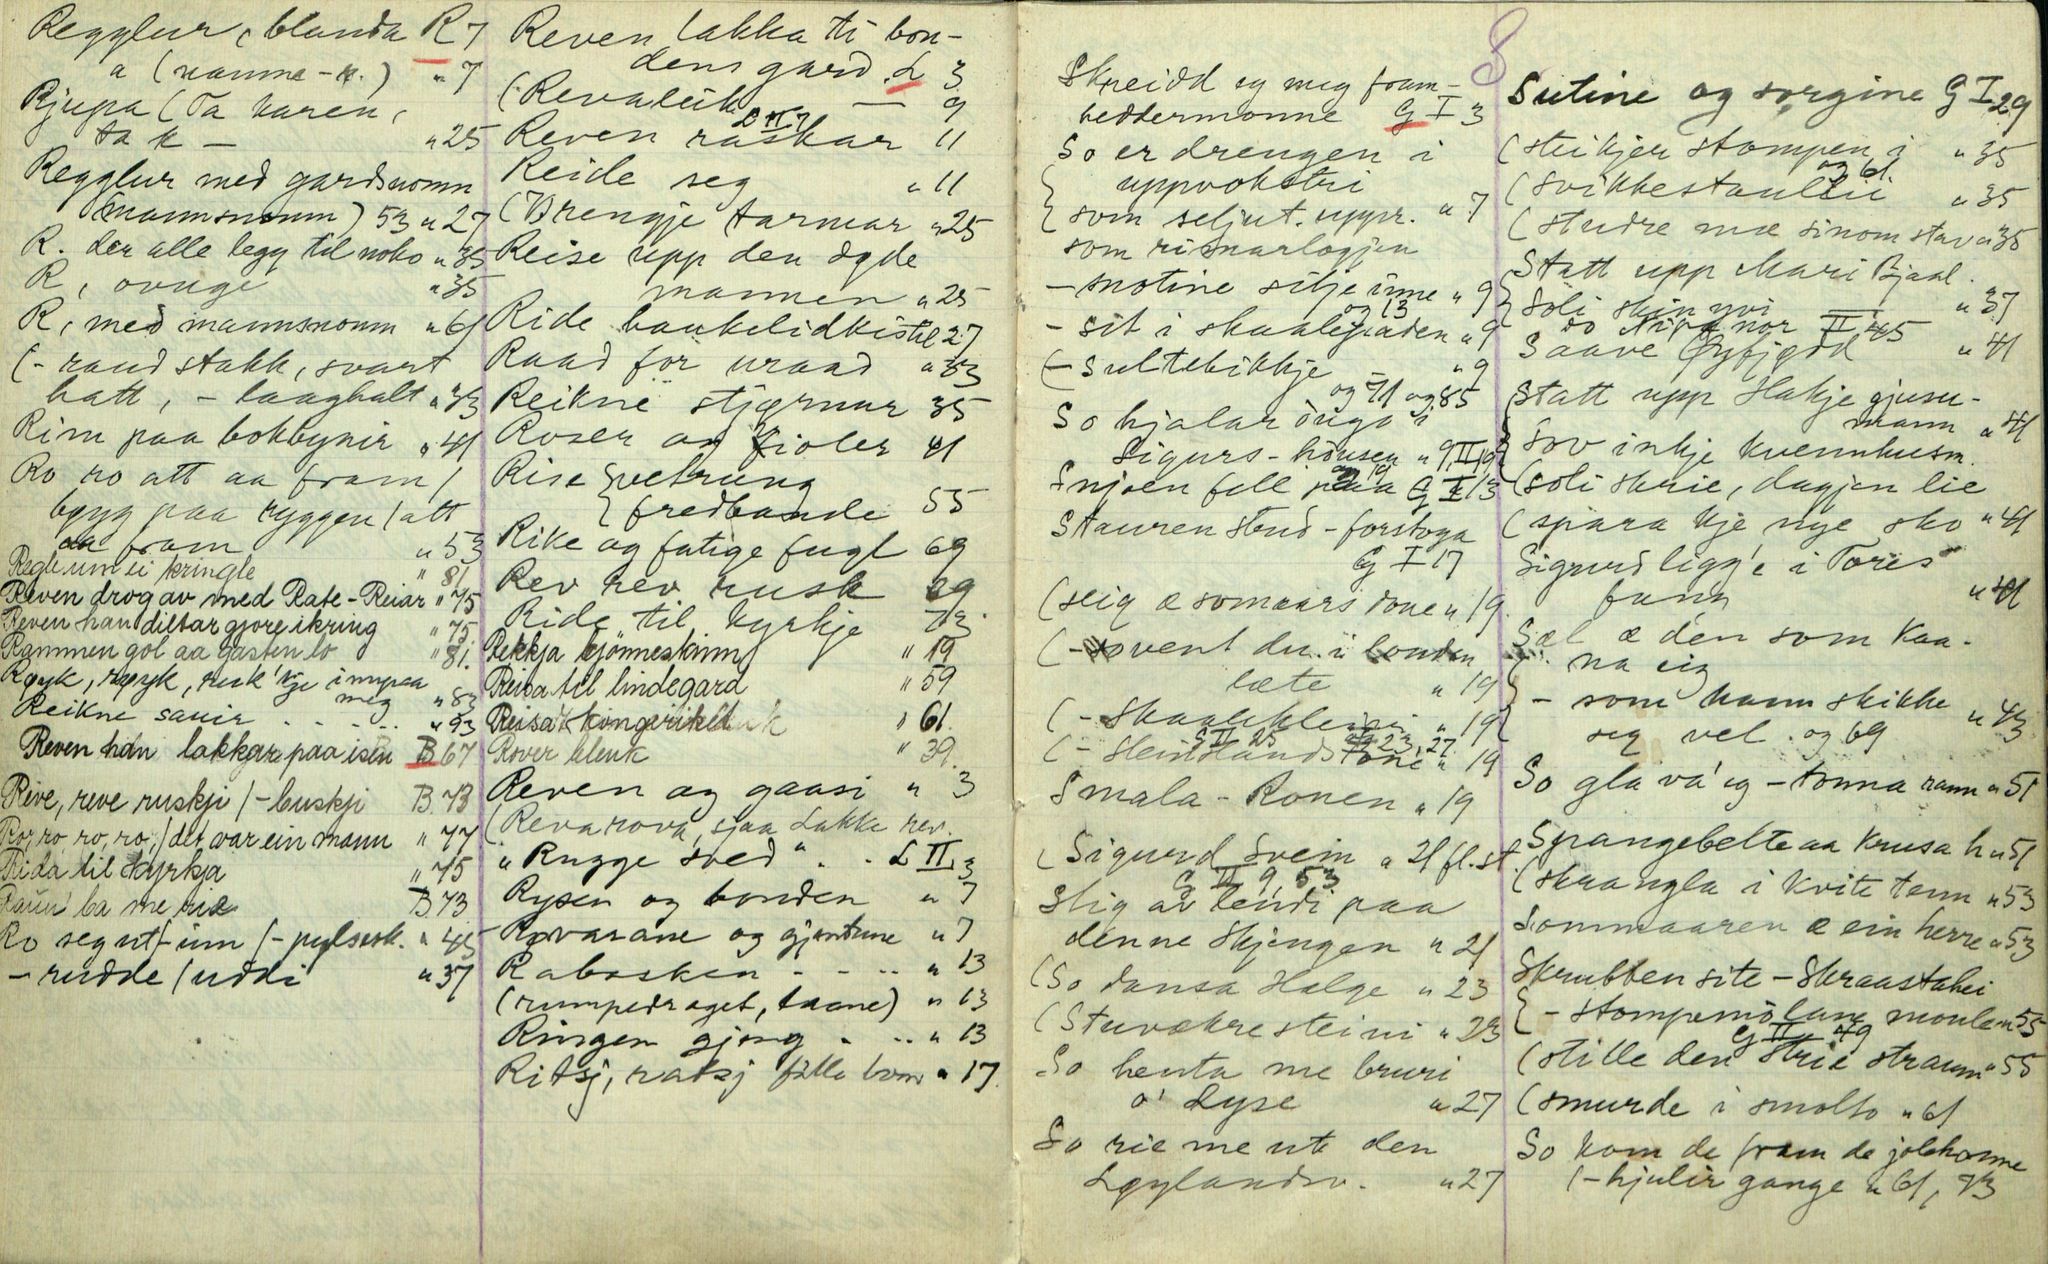 Regglur, blanda R 7
a (namne-r.) " 7
Rjupa (Ta karen,
ta k — " 25
Regglur med gardsnomn
(mannsnomn) 53 " 27
R. der alle legg til noko " 35
R, ovuge " 35
R, med mannsnomn " 61
(- raud stakk, svart
hatt, - laaghalt " 33
Rim paa bokbynir " 41
Ro ro att aa fram /
bygg paa ryggen / att
aa fram " 53
Regle um ei kringle " 81
Reven drog av med Rate-Reiar " 75
Reven han diltar gjore ikring " 75.
Rammen gol aa gasten lo " 81.
Røyk, røyk, ruk 'kje innpaa
meg " 83
Reikne sauir . . . . . " 93
Reven han lakkar paa isen B 67
Reve, reve ruskji / - buskji B. 73
Ro, ro ro, ro, / det var ein mann " 77
Rida til kyrkja " 75
B 73
Ro seg ut - um / - pylsesk. " 45
- rudde / uddi " 37
Reven lakka ti bon-
dens gard L 3
(Revaleik — 9
L II 7
Reven raskar 11
Reide seg " 11
(Vrengje tarmar " 25
Reise upp den døde
mannen " 25
Ride baukelidkistil 27
Raad for uraad " 33
Reikne stjernur 35
Roser og fioler 41
Rise { vetrung
{ fredbande 55
Rike og fatige fugl 69
Rev rev rusk 69
Ride til kyrkje 73.
Rekkja bjønneskinn " 19
Reisa til lindegard " 59
Reisa kongeriket " 61
Røver blenk " 39.
Reven og gaasi " 3
(Revarova, sjaa Lakke rev.
"Rugge sved" . - L II, 3
Rysen og bonden " 7
Røvarane og gjentune " 7
Rabasken - - .. " 13
(rumpedraget, taane) " 13
Ringen gjeng . .. " 13
Ritsj, ratsj fille bom " 17.
S
Skreidd eg meg fram-
heddermonne G I 3
So er drengen i
{ uppvokstri
{ som seljut. uppr. " 7
som rismarlogjen
- motine silje inne " 9
og 13
- sit i skaaleglaaden " 9
(- Sultebikkje " 9
og 71 og 85
So hjalar unga i
Sigurs-husen " 9, II, 19
og 19
Snjoen fell paa G I 13
Stauren stud - forstoga
G I 17
(seig æ somaars done " 19.
(- sovent du i londen
læte " 19
(- Skaalekleivi " 19
G II 25 23, 27
(- Steinslands Tone " 19
Smala-Ronen " 19
(Sigurd Svein " 21 fl. st.
G II 9, 53
Stig av lendi paa
denne skjengen " 21
(So dansa Halge " 23
(Stuvekresteini " 23
So henta me bruri
o' Lyse " 27
So rie me ut den
Løylandsv. " 27
Sutine og sorgine G I 29
(steikjer stompen i " 35
og 61.
(svikkestaullii " 35
(studre mæ sinom stav " 35
Statt upp Mari Bjaal.
{ Soli skin yvi " 37
do nor II 45
Saave Øyfjødd " 41
Statt upp Hakje gjusu-
mann " 41
{ Sov inkje kvennhusm.
(soli skrie, dagjen lie
(spara kje nye sko " 41
Sigurd ligg'e i Tores
fann " 41
Sæl æ den som kaa-
{ na eig
{ - som kann skikke
seg vel. og 69 " 43
So gla va' eg - tonna rann " 51
Sprangebelte aa krusa h " 51
(skrangla i kvite tenn " 53
Sommaaren æ ein herre " 53
Skrubben site - Skraastahei
{ - Stompemølune monle " 55
G II 49
(stille den strie straum " 55
(smurde i smolto " 61
So kom de fram de jolekonne
(- hjulir gange " 61, 73